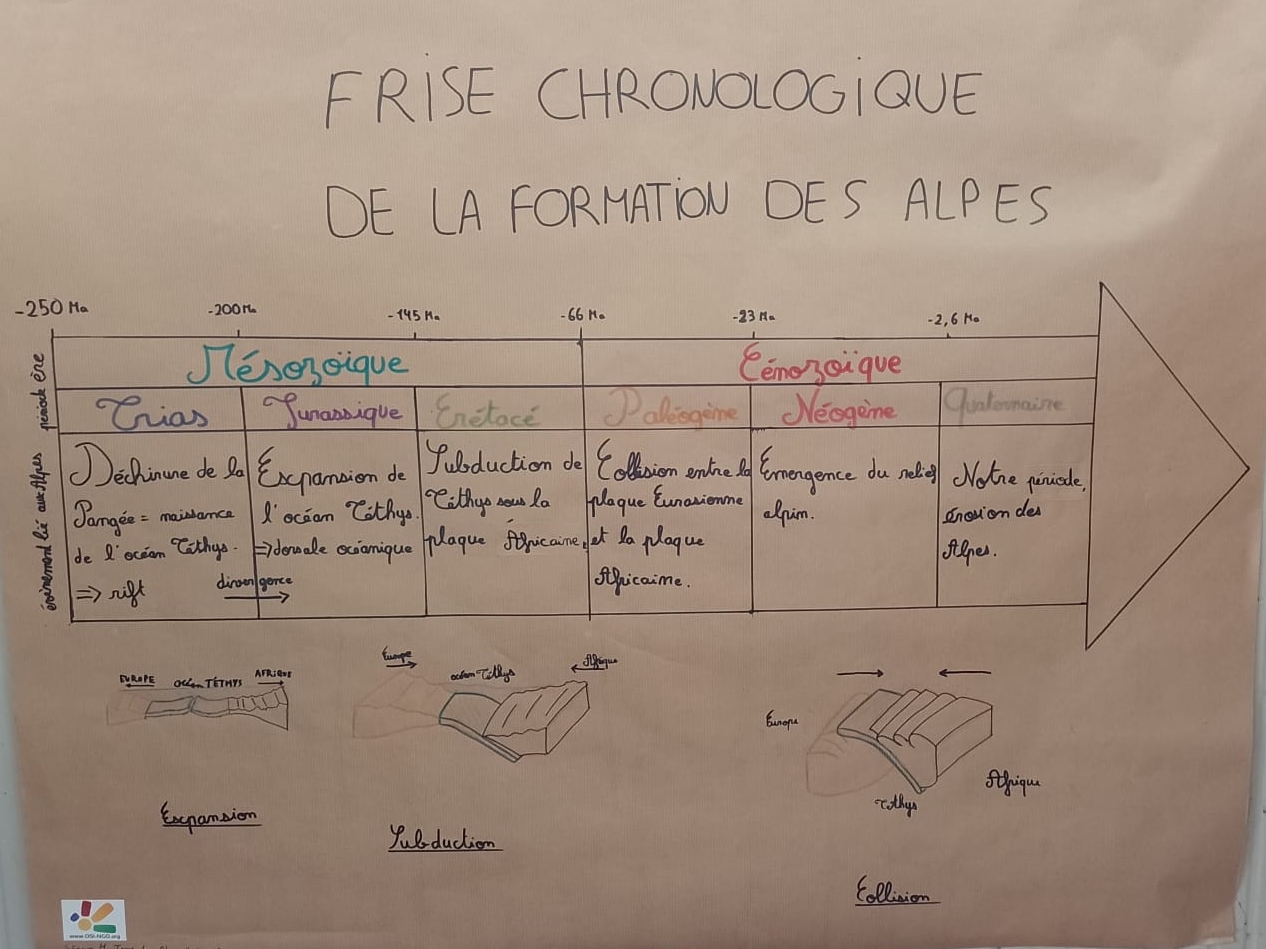 FRISE CHRONOLOGIQUE
DE LA FORMATION DES ALPES
-250 Ma
-200 Ma
-145 Ma
-66 Ma
-23 Ma
-2,6 Ma
ère
Mésozoïque
Cénozoïque
période
Trias
Jurassique
Crétacé
Paléogène
Néogène
Quaternaire
évènement lié aux Alpes
Déchirure de la
Pangée = naissance
de l'océan Téthys.
=> rift
divergence
Expansion de
l'océan Téthys.
=> dorsale océanique
Subduction de
Téthys sous la
plaque Africaine.
Collision entre la
plaque Eurasienne
et la plaque
Africaine.
Émergence du relief
alpin.
Notre période,
érosion des
Alpes.
EUROPE
océan TÉTHYS
AFRIQUE
Expansion
Europe
océan Téthys
Afrique
Subduction
Europe
Téthys
Afrique
Collision
www.OSI-NGO.org